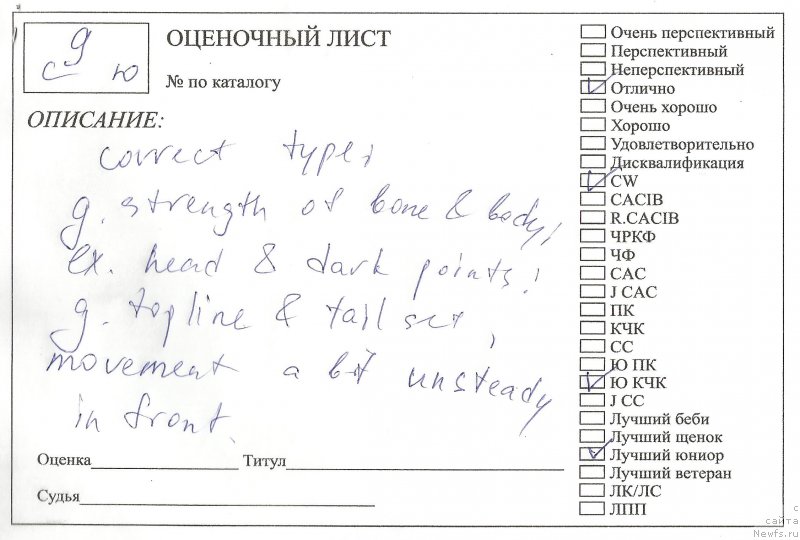 9
с ю
ОЦЕНОЧНЫЙ ЛИСТ
№ по каталогу
ОПИСАНИЕ:
correct type,
g. strength of bone & body,
ex. head & dark points,
g. topline & tail set,
movement a bit unsteady
in front.
Оценка Титул
Судья
Очень перспективный
Перспективный
Неперспективный
Отлично
Очень хорошо
Хорошо
Удовлетворительно
Дисквалификация
CW
CACIB
R.CACIB
ЧРКФ
ЧФ
САС
J САС
ПК
КЧК
СС
Ю ПК
Ю КЧК
J СС
Лучший беби
Лучший щенок
Лучший юниор
Лучший ветеран
ЛК/ЛС
ЛПП
с
сайта
Newfs.ru